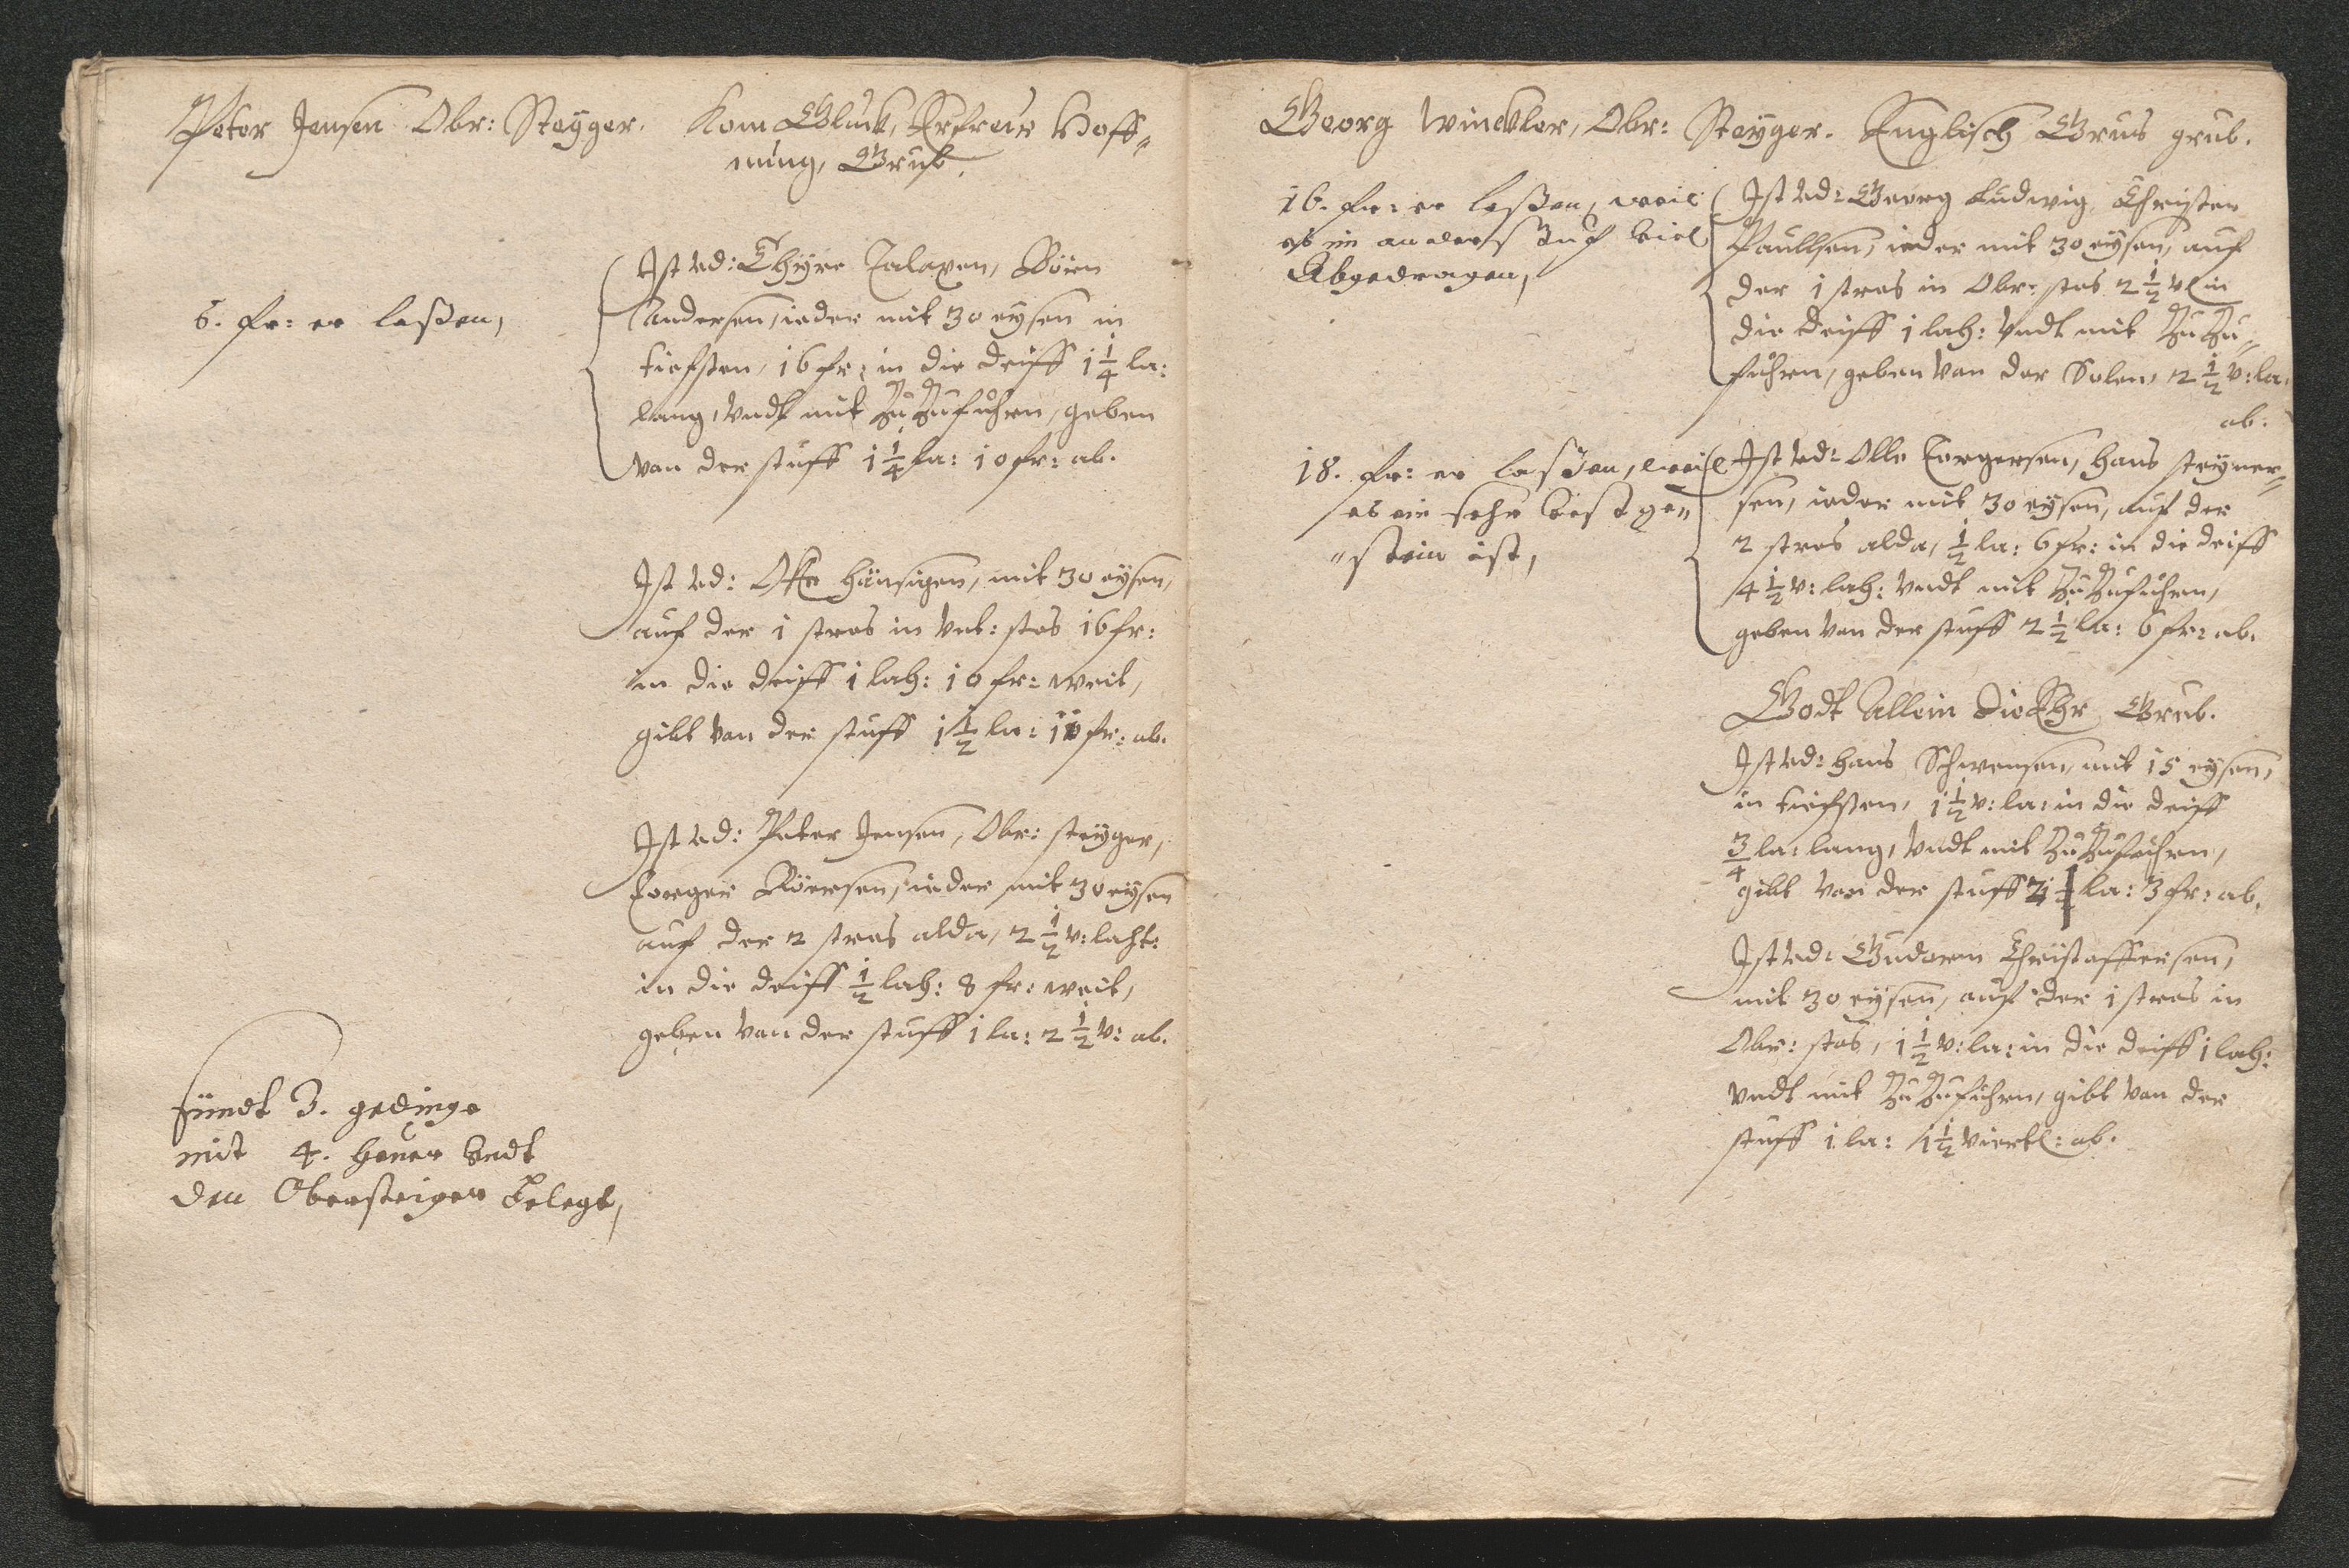 Peter Jensen Obr: Steyger. Kom Gluck, Erfreue Hoff„
nung, Grub.
6. fr: er laßen,
Ist vd: Thyre Talaxen, Biörn
Andersen, ieder mit 30 eysen in
tiefsten, 16 fr: in die deiff 1 1/4 la:
lang, vndt mit Zu Zuführen, geben
von der stuff 1 1/4 la: 10 fr: ab.
Ist vd: Offe Hänsigen, mit 30 eysen,
auf der 1 stros in Vnt: stos 16 fr:
in die deiff 1 lach: 10 fr: weit,
gibt von der stuff 1 1/2 la: fr: ab.
Ist vd: Peter Jensen, Obr: steyger,
Torger Biörsen, ieder mit 30 eysen
auf der 2 stros alda, 2 1/2 v: lacht:
in die deiff 1/2 lach: 8 fr: weit,
geben von der stuff 1 la: 2 1/2 v: ab.
sündt 3. gedinge
mit 4. heuer vndt
den Obersteiger belegt,
Georg Winckler, Obr: Steyger. Englisch Grus grub.
16. fr: er laßen, weil
es im viel
Abgedragen,
Ist vd: Georg Ludwig, Christen
Paullsen, ieder mit 30 eysen, auf
der 1 stros in Obr: stos 2 1/2 v: in
die deiff 1 lach: vndt mit Zu Zu„
führen, geben von der Solen, 2 1/2 v: la.
ab.
18. fr: er laßen, weil
es ein sehr fest ge„
„stein ist,
Ist vd: Olle Torgersen, Hans steyner„
sen, ieder mit 30 eysen, auf der
2 stros alda, 1/2 la: 6 fr: in die deiff
4 1/2 v: lach: vndt mit Zu Zuführen,
geben von der stuff 2 1/2 la: 6 fr: ab.
Godt Allein die Ehr Grub.
Ist vd: Hans Schwensen, mit 15 eysen,
in tiefsten, 1 1/2 v: la: in die deiff
3/4 la: lang, vndt mit Zu Zuführen,
gibt von der stuff la: 3 fr: ab.
Ist vd: Gudarm Christoffersen,
mit 30 eysen, auf der 1 stros in
Obr: stos, 1 1/2 v: la: in die deiff 1 lach:
vndt mit Zu Zuführen, gibt von der
stuff 1 la: 1 1/2 viertl: ab.